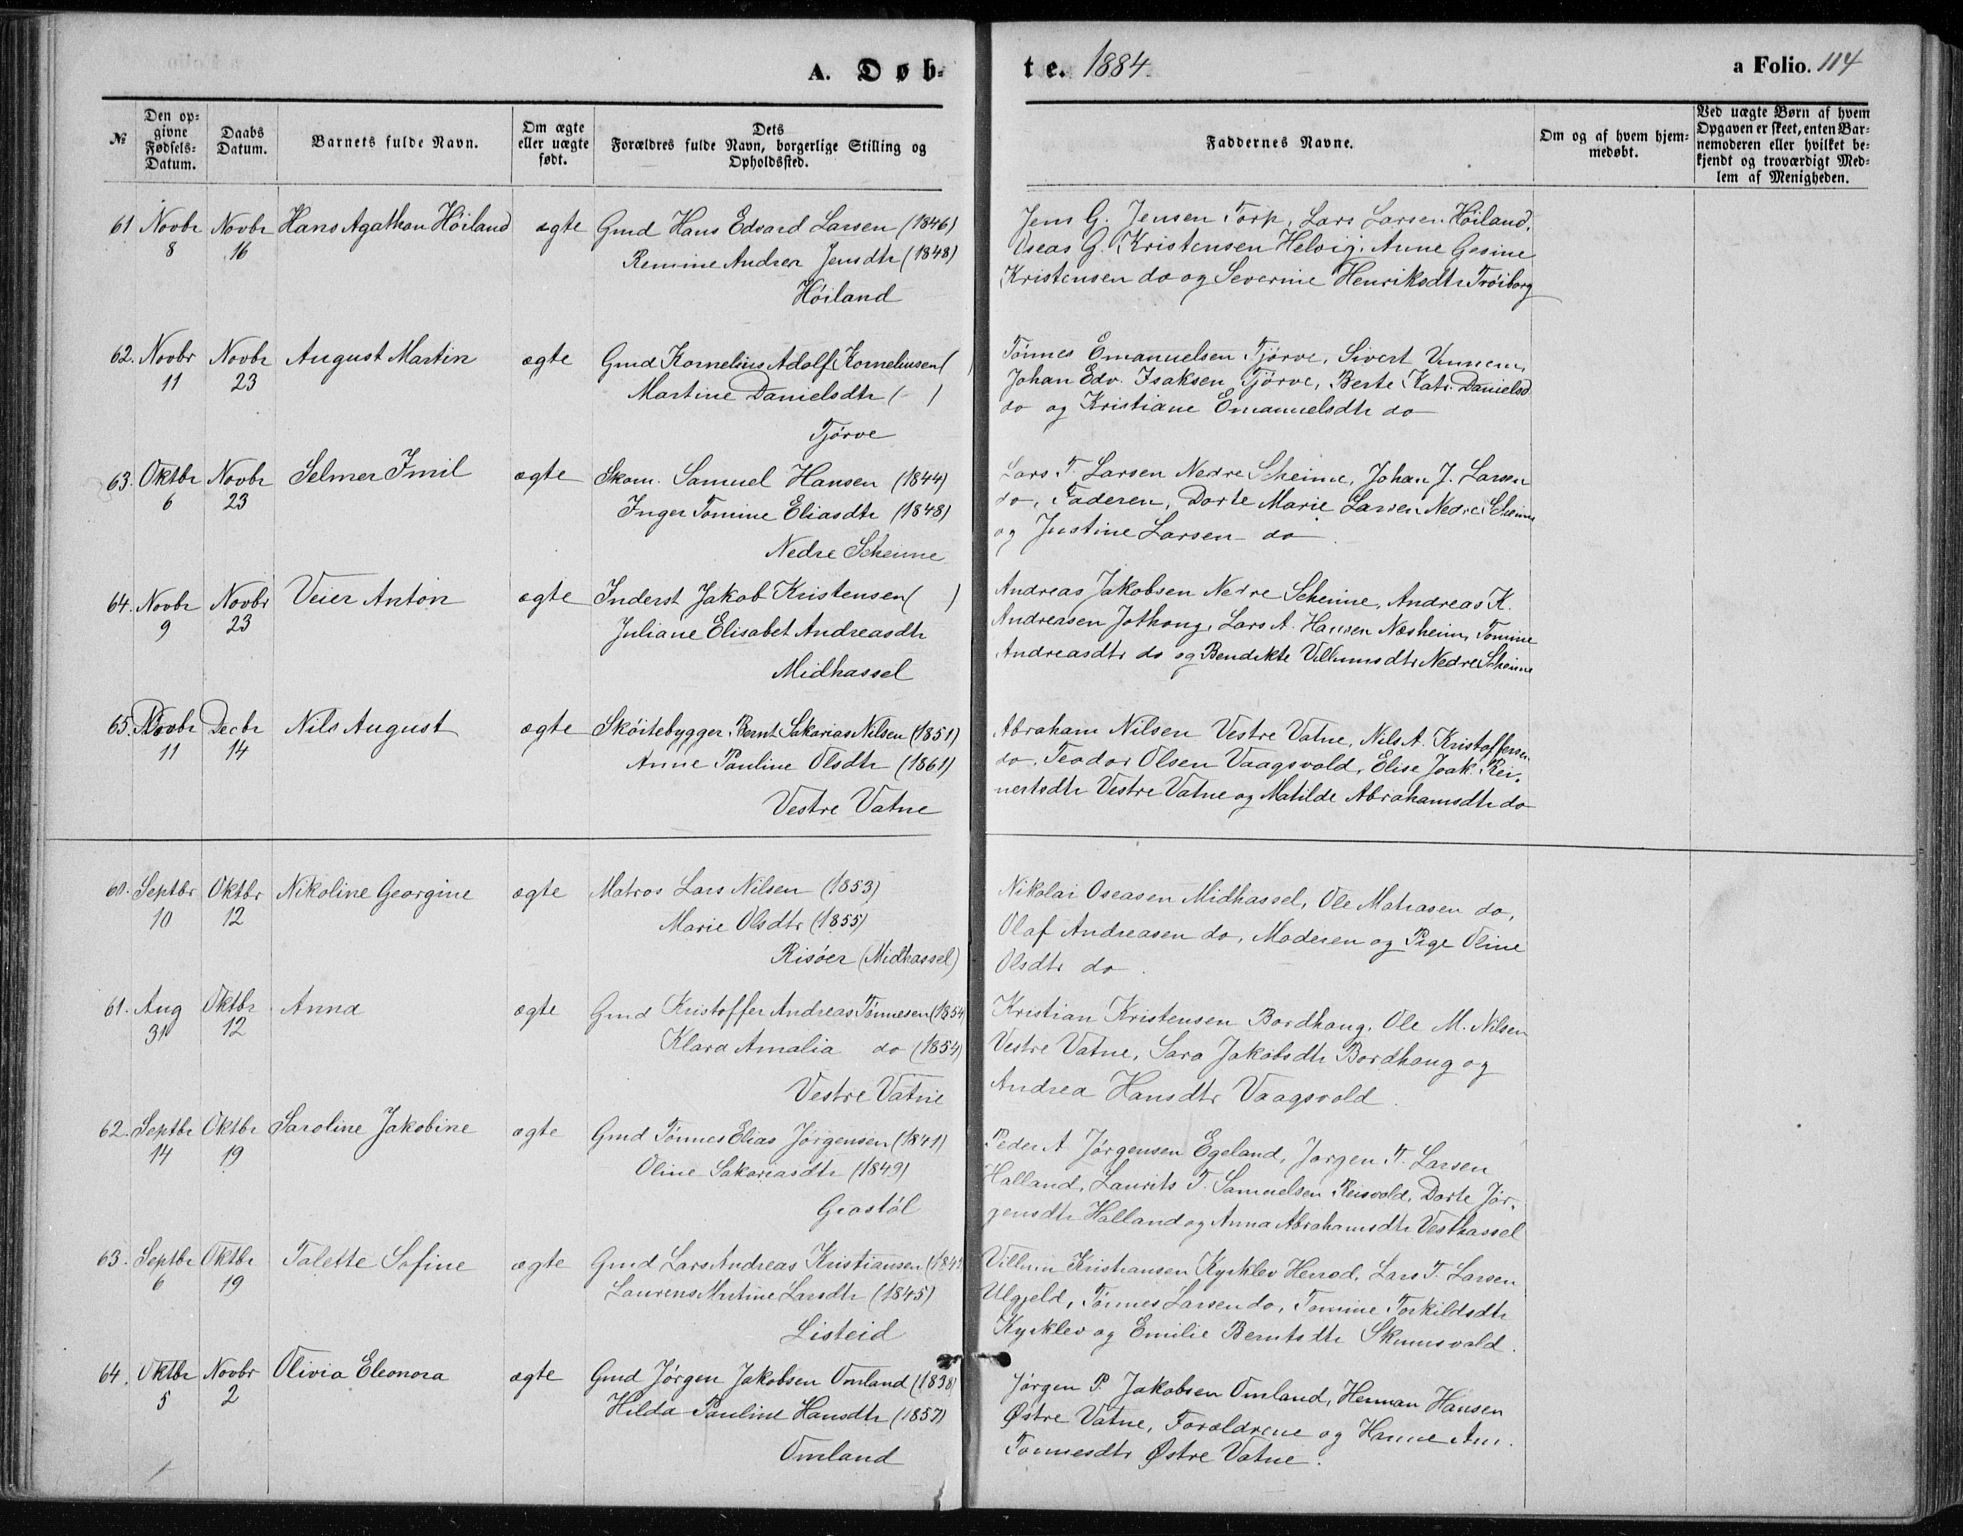 A. Døb-
te. 1884.
a Folio. 114
№
Den op-
givne
Fødsels-
Datum.
Daabs
Datum.
Barnets fulde Navn.
Om ægte
eller uægte
født.
Dets
Forældres fulde Navn, borgerlige Stilling og
Opholdssted.
Faddernes Navne.
Om og af hvem hjem-
medøbt.
Ved uægte Børn af hvem
Opgaven er skeet, enten Bar-
nemoderen eller hvilket be-
kjendt og troværdigt Med-
lem af Menigheden.
61 Novbr Novbr Hans Agathon Høiland ægte Gmd Hans Edvard Larsen (1846)
8 16 Remine Andrea Jensdtr (1848)
Høiland
Jens G. Jensen Torp, Lars Larsen Høiland,
Oseas G. Kristensen Helvig, Anne Gesine
Kristensen do og Severine Henriksdtr Trøiborg
62. Novbr Novbr August Martin ægte Gmd Kornelius Adolf Korneliusen (
11 23 Martine Danielsdtr ( )
Tjørve
Tønnes Emanuelsen Tjørve, Sivert Unnem,
Johan Edv. Isaksen Tjørve, Berte Katr. Danielsd
do og Kristiane Emanuelsdtr do
63. Oktbr Novbr Selmer Imil ægte Skom. Samuel Hansen (1844)
6 23 Inger Tomine Eliasdtr (1848)
Nedre Scheime
Lars T. Larsen Nedre Scheime, Johan J. Larsen
do, Faderen, Dorte Marie Larsen Nedre Scheime
og Justine Larsen do.
64. Novbr Novbr Veier Anton ægte Inderst Jakob Kristensen ( )
9 23 Juliane Elisabet Andreasdtr
Midhassel
Andreas Jakobsen Nedre Scheime, Andreas K.
Andreasen Jothoug, Lars A. Hansen Næsheim, Tomine
Andreasdtr do og Bendikte Villumsdtr Nedre Scheime
65. Novbr Decbr Nils August ægte Skøitebygger Bernt Sakarias Nilsen (1851)
11 14 Anne Pauline Olsdtr (1861)
Vestre Vatne
Abraham Nilsen Vestre Vatne, Nils A. Kristoffersen
do, Teodor Olsen Vaagsvold, Elise Joak. Rei-
nertsdtr Vestre Vatne og Matilde Abrahamsdtr do
60. Septbr Oktbr Nikoline Georgine ægte Matros Lars Nilsen (1853)
10 12 Marie Olsdtr (1855)
Risøer (Midhassel)
Nikolai Oseasen Midhassel, Ole Matiasen do,
Olaf Andreasen do, Moderen og Pige Oline
Olsdtr do.
61. Aug Oktbr Anna ægte Gmd Kristoffer Andreas Tønnesen (1854
31 12 Klara Amalia do (1854)
Vestre Vatne
Kristian Kristensen Bordhaug, Ole M. Nilsen
Vestre Vatne, Sara Jakobsdtr Bordhaug og
Andrea Hansdtr Vaagsvold.
62. Septbr Oktbr Saroline Jakobine ægte Gmd Tønnes Elias Jørgensen (1841)
14 19 Oline Sakariasdtr (1849)
Grostøl
Peder A Jørgensen Egeland, Jørgen T. Larsen
Halland, Laurits T. Samuelsen Reisvold, Dorte Jør-
gensdtr Halland og Anna Abrahamsdtr Vesthassel
63. Septbr Oktbr Talette Sofine ægte Gmd Lars Andreas Kristiansen
6 19 Laurens Martine Larsdtr (1845)
Listeid
Villum Kristiansen Kjørklev Herrod, Lars T. Larsen
Ulgjeld, Tønnes Larsen do, Tomine Torkildsdtr
Kjørklev og Emilie Berntsdtr Skumsvold.
64. Oktbr Novbr Olivia Eleonora ægte Gmd Jørgen Jakobsen Omland (1838)
5 2 Hilda Pauline Hansdtr (1857)
Omland
Jørgen P. Jakobsen Omland, Herman Hansen
Østre Vatne, Forældrene og Hanne Am.
Tønnesdtr Østre Vatne.